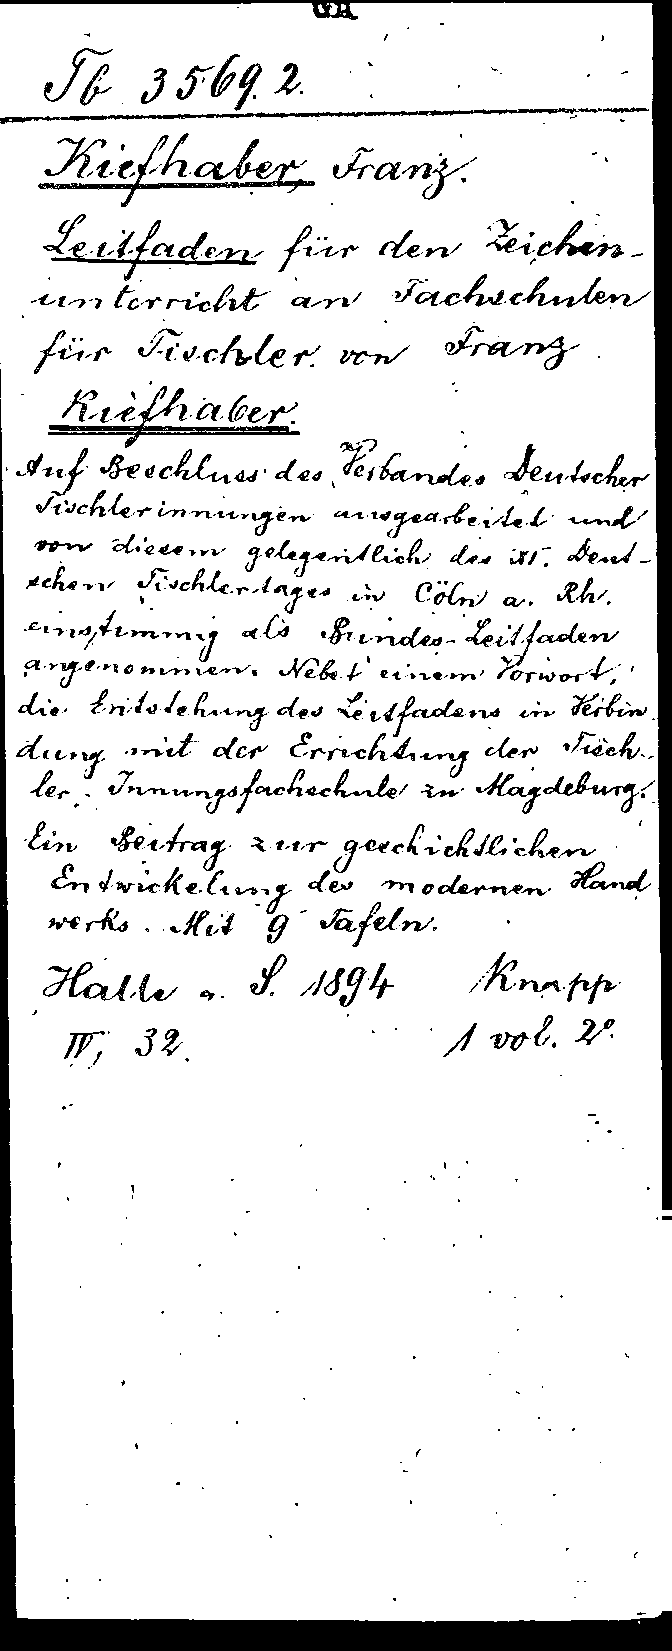 Tb 3569.2.
Kiefhaber, Franz.
Leitfaden für den Zeichen-
unterricht an Fachschulen
für Tischler. von Franz
Kiefhaber.
Auf Beschluss des Verbandes Deutscher
Tischlerinnungen ausgearbeitet und
von diesem gelegentlich des XI. Deut-
schen Tischlertages in Cöln a. Rh.
einstimmig als Bundes-Leitfaden
angenommen. Nebst einem Vorwort,
die Entstehung des Leitfadens in Verbin
dung mit der Errichtung der Tisch-
ler-Innungsfachschule zu Magdeburg.
Ein Beitrag zur geschichtlichen
Entwickelung des modernen Hand
werks. Mit 9 Tafeln.
Halle a. S. 1894 Knapp
IV, 32. 1 vol. 2°.